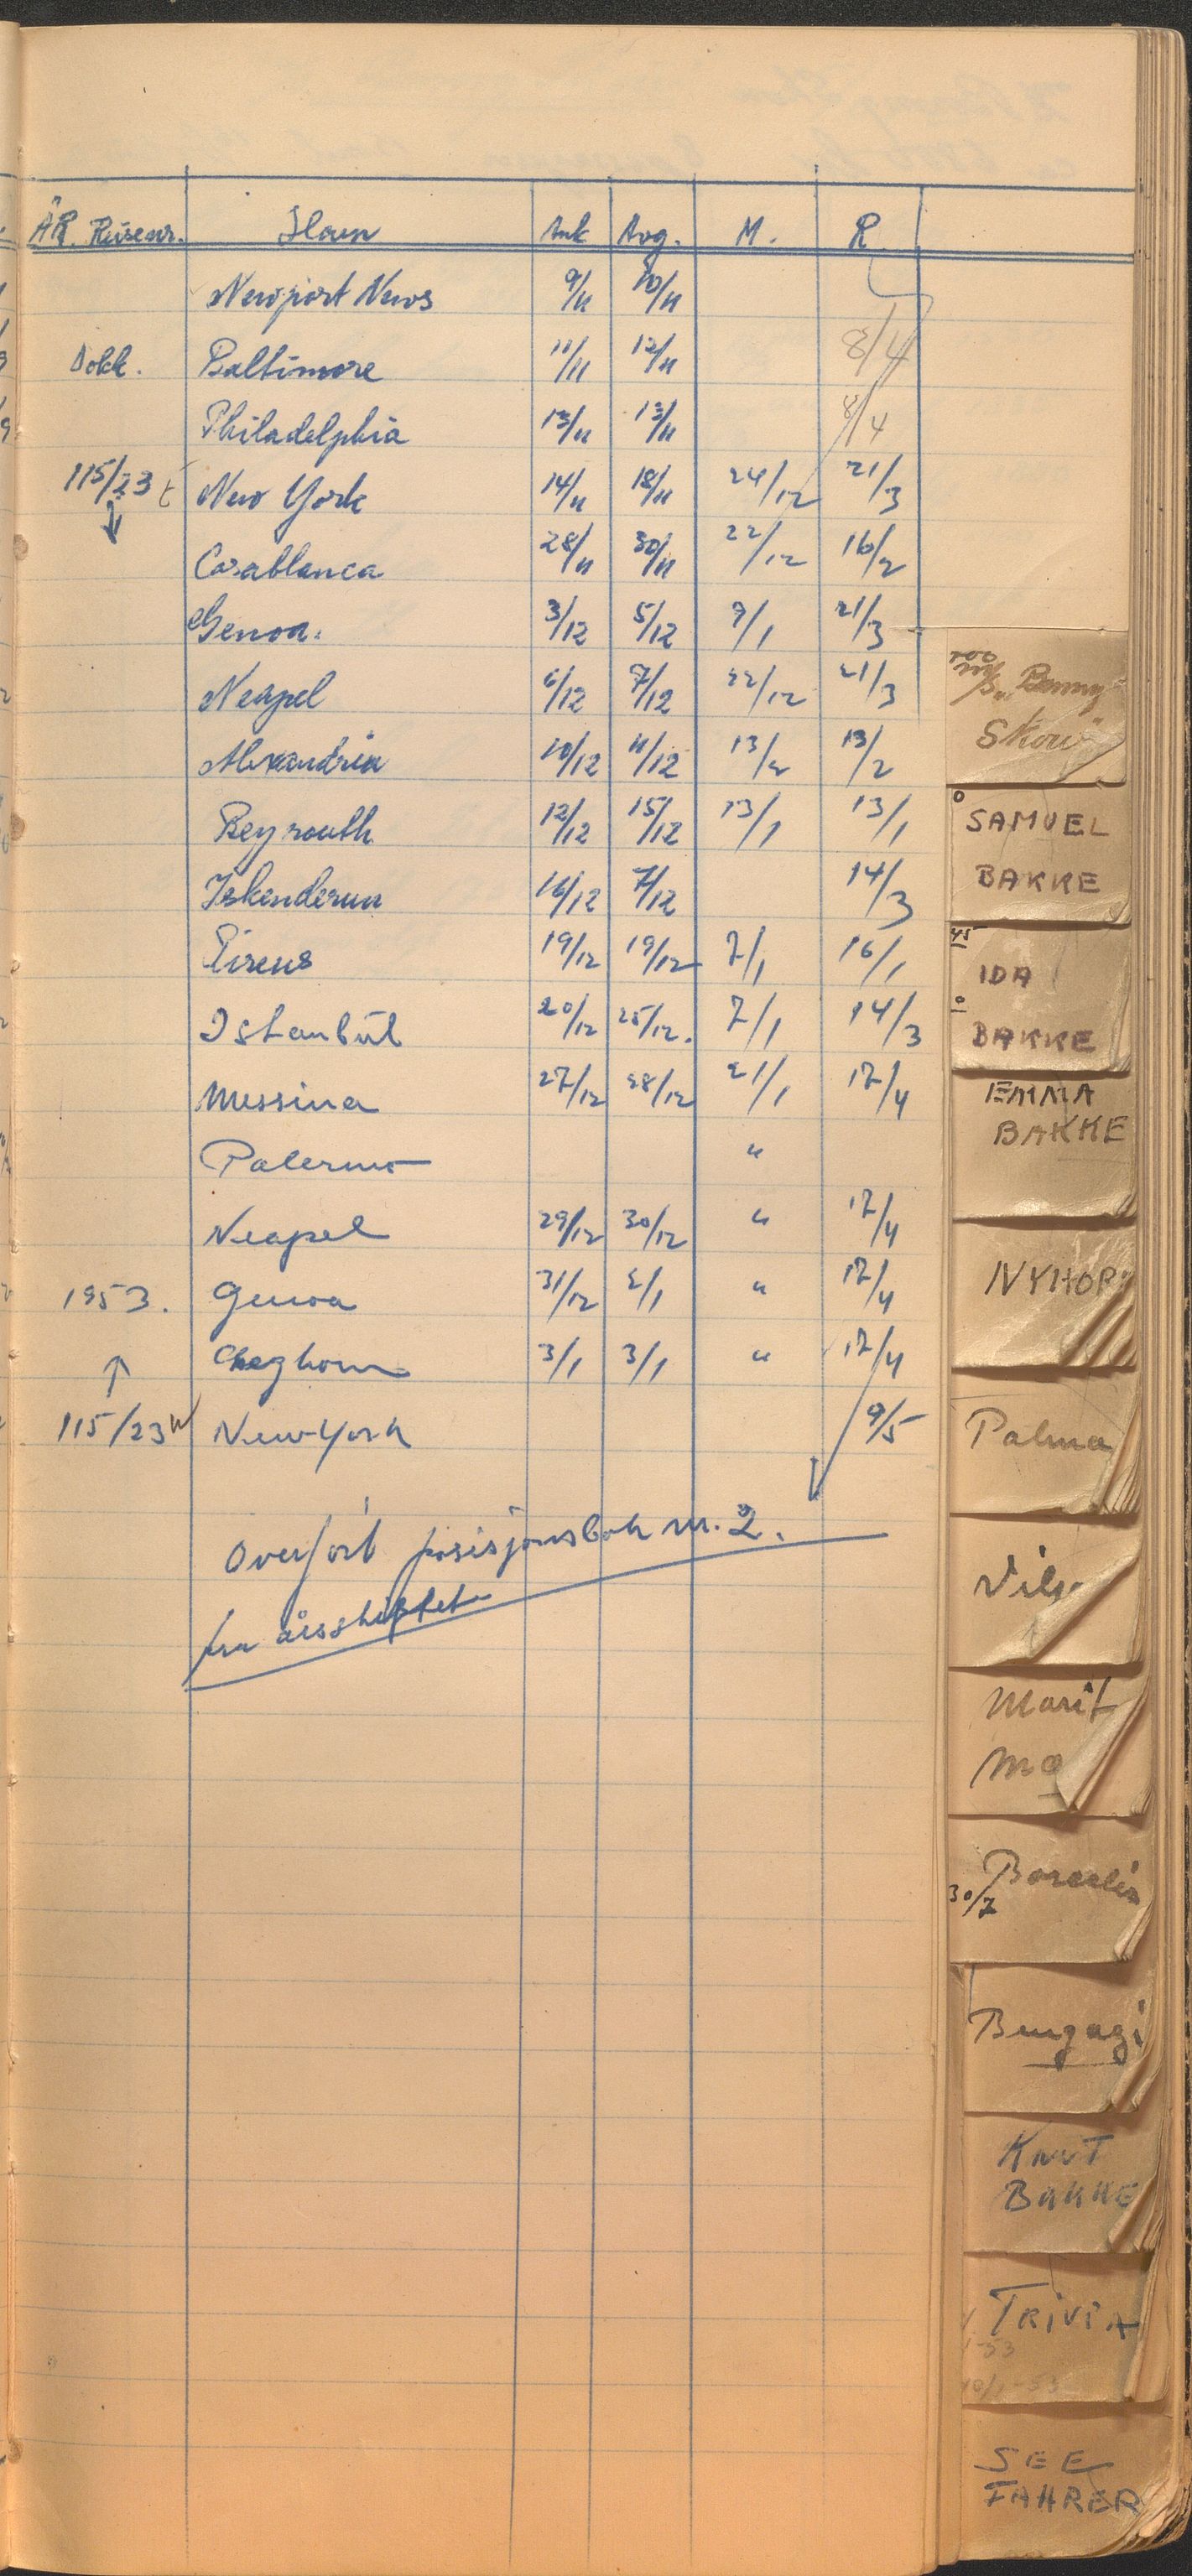 ÅR. Reisenr. Havn Ank Avg. M. R.
Newport News 9/11 10/11
Dokk. Baltimore 11/11 12/11 8/4
Philadelphia 13/11 13/11 8/4
115/23 New York 14/11 18/11 24/12 21/3
Casablanca 28/11 30/11 22/12 16/2
Genoa. 3/12 5/12 7/1 21/3
Neapel 6/12 7/12 22/12 21/3
Alexandria 10/12 11/12 13/2 13/2
Beyrouth 12/12 15/12 13/1 13/1
Iskenderun 16/12 7/12 14/3
Pireus 19/12 19/12 7/1 16/1
Istanbul 20/12 25/12. 7/1 14/3
Messina 27/12 28/12 21/1 17/4
Palermo "
Neapel 29/12 30/12 " 17/4
1953. Genoa 31/12 2/1 " 17/4
Leghorn 3/1 3/1 " 17/4
115/23 New-York 9/5
Overført posisjonsbok nr. 2.
fra årsskiftet
"Bonny"
Skou
SAMUEL
BAKKE
45
IDA
BAKKE
EMMA
BAKKE
NYHOR
Palma
Vils
Marit
Mæ
30/7
Bengazi
KNUT
BAKKE
TRIVIA
SEE
FAHRER